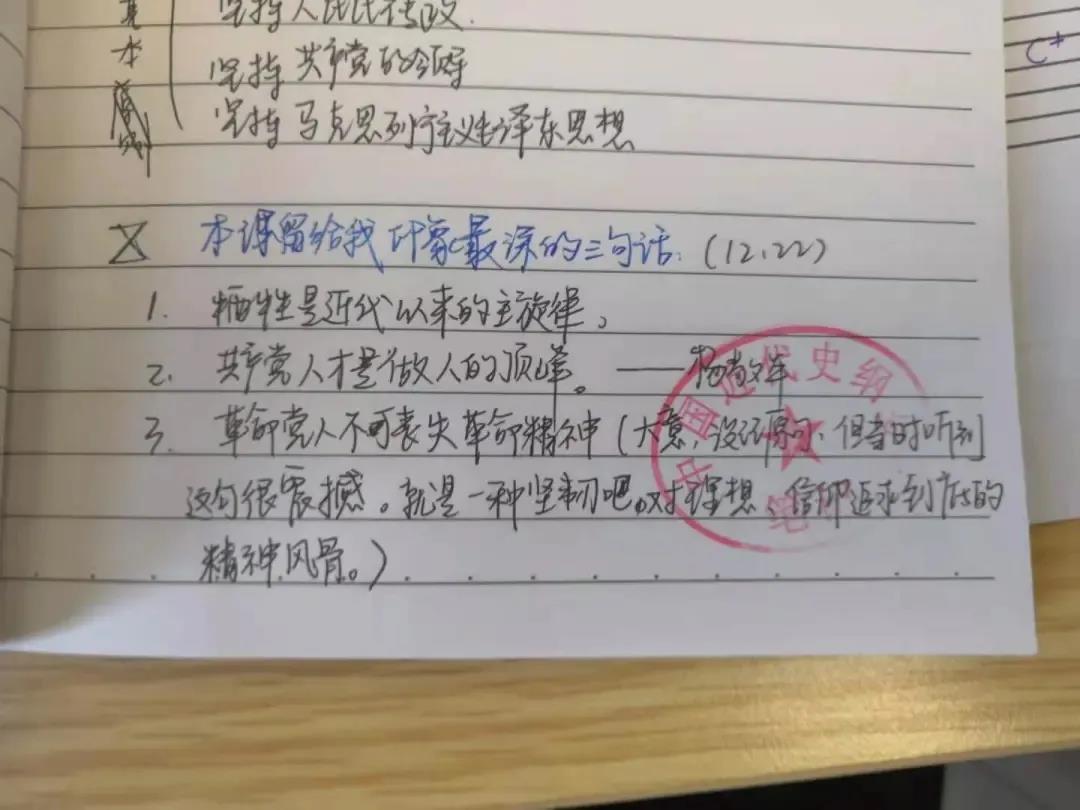 坚持人民民主专政.
坚持共产党的领导
坚持马克思列宁主义毛泽东思想
本
本课留给我印象最深的三句话:(12.22)
1. 牺牲是近代以来的主旋律。
2. 共产党人才是做人的顶峰。——杨
3. 革命党人不可丧失革命精神(大意,没记原句,但当时听到
这句很震撼。就是一种坚韧吧。对理想、信仰追求到底的
精神风骨。)
中国近代史纲
笔
C+